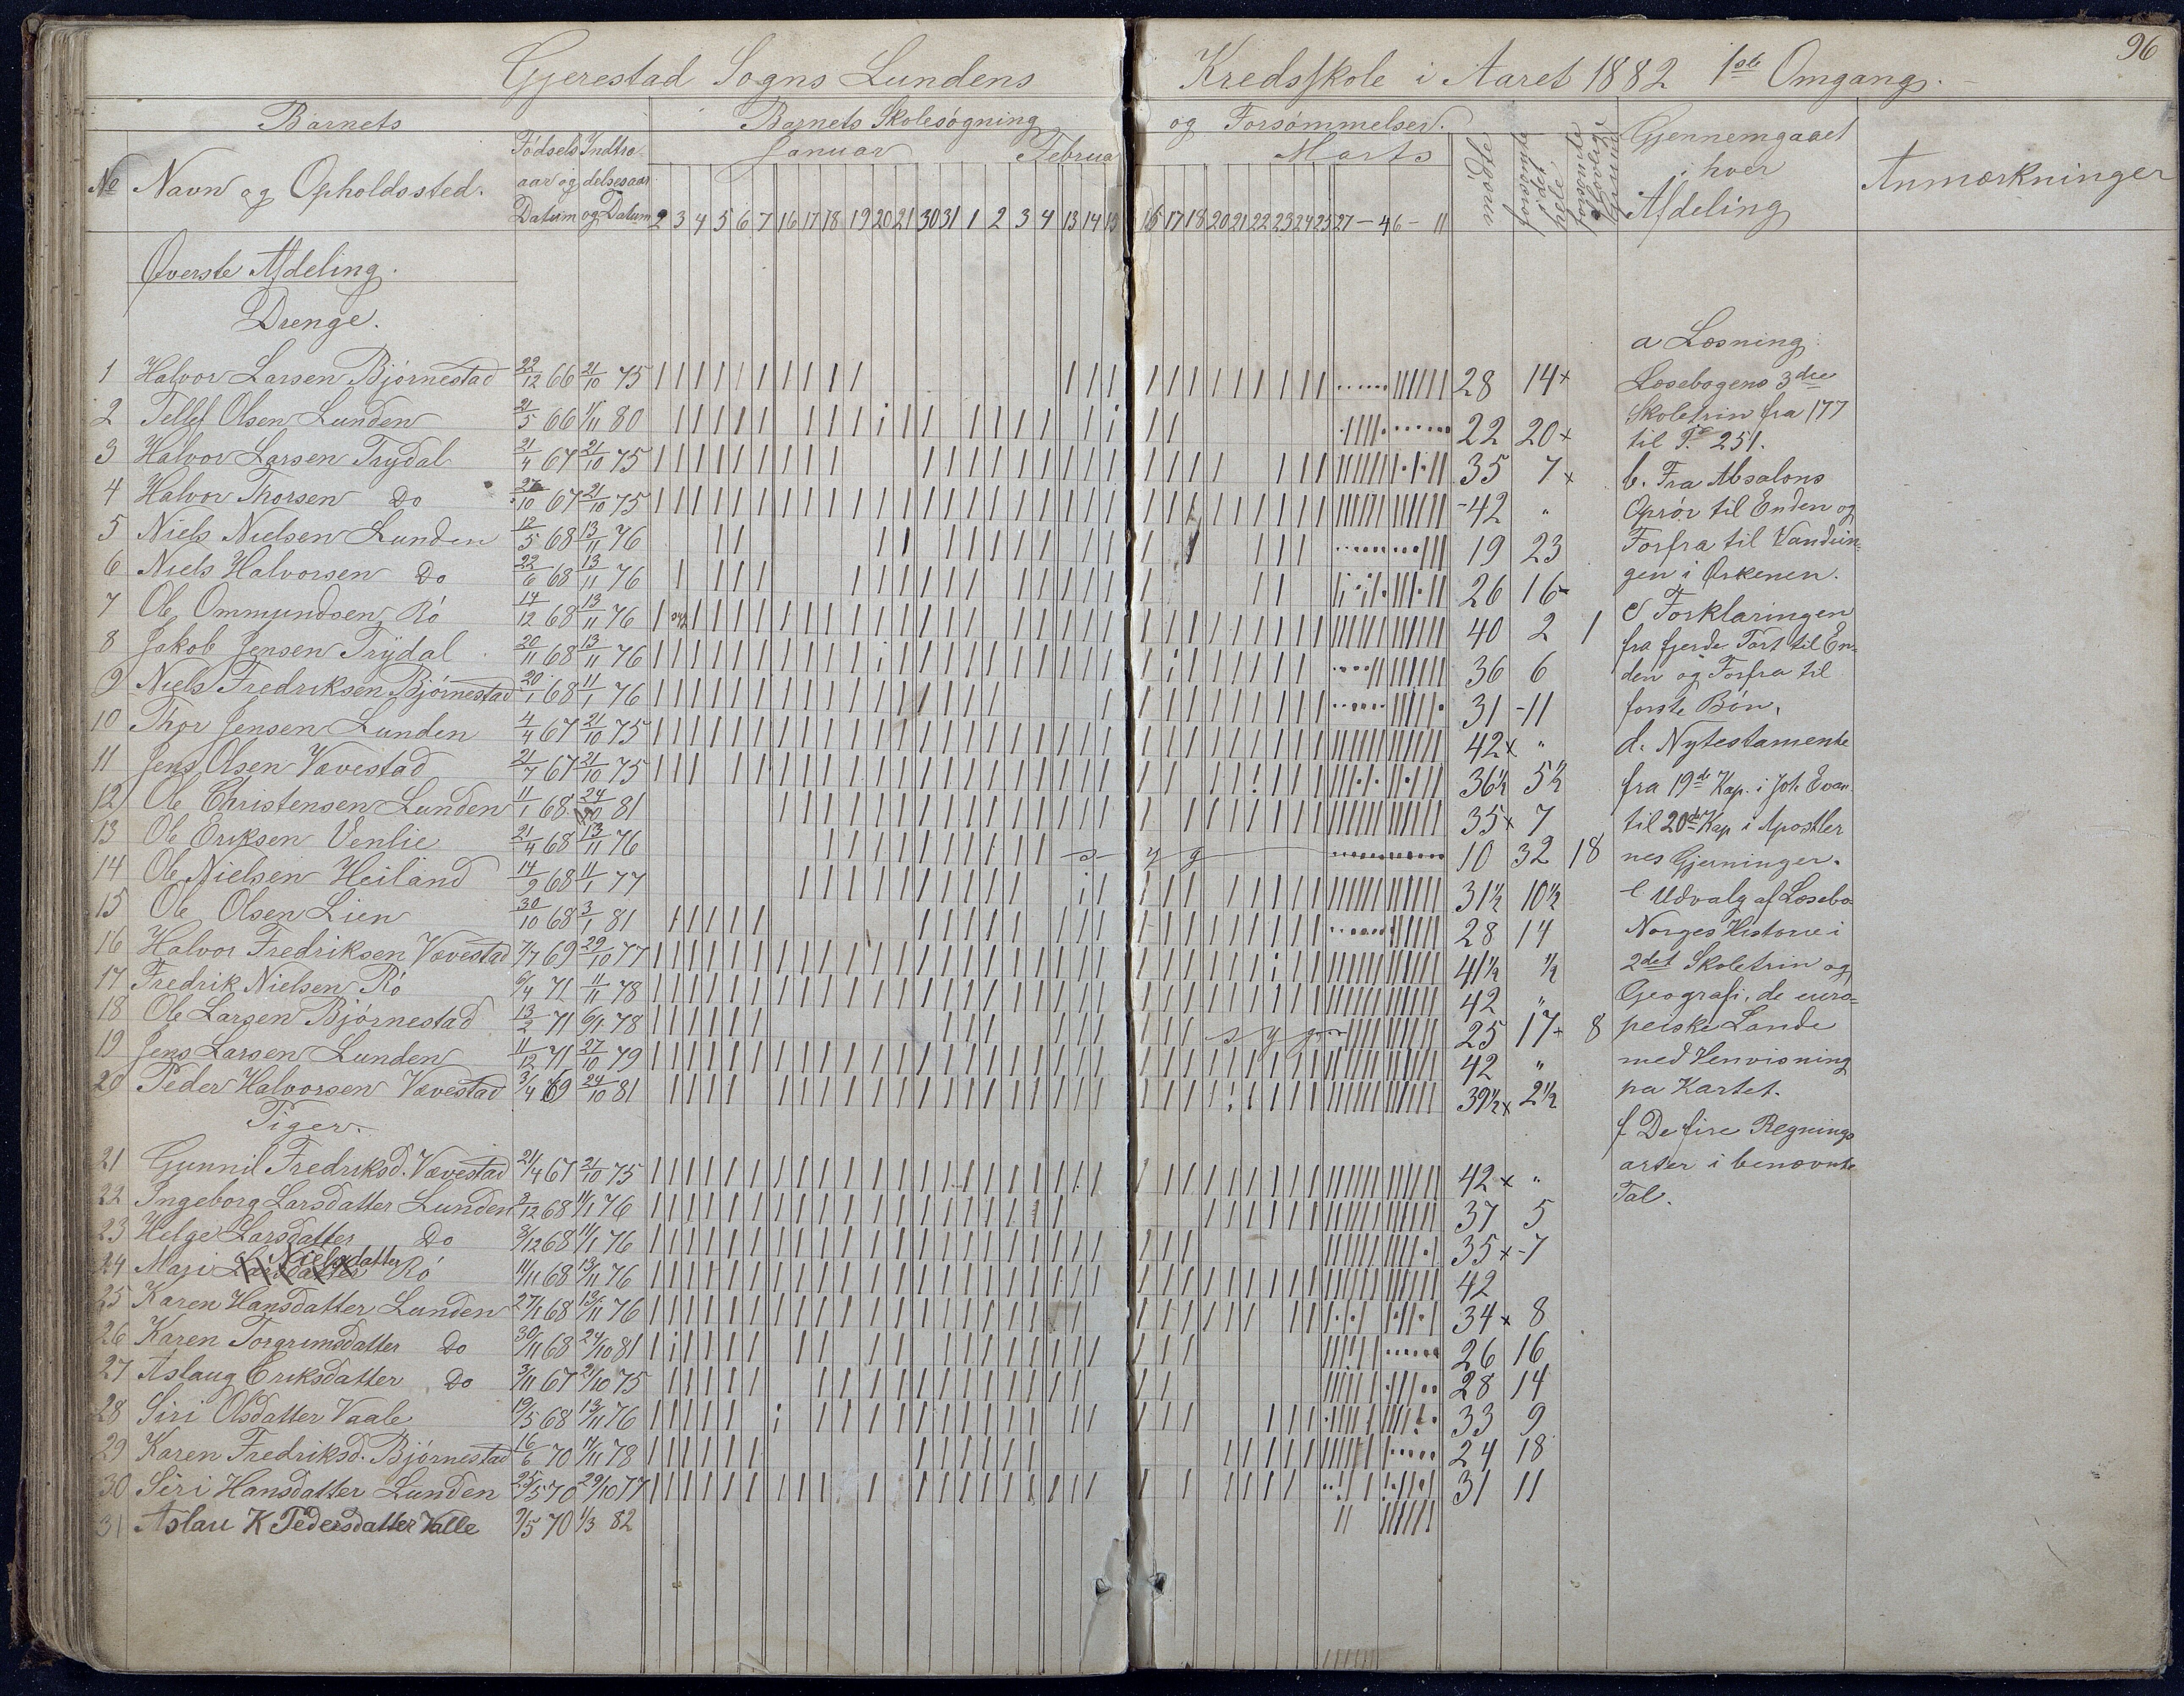 96
Gjerestad Sogns Lundens Kredsskole i Aaret 1882 1ste Omgang.
Barnets
Barnets Skolesøgning og Forsømmelser.
No Navn og Opholdssted.
Fødsels aar og Datum
Indtrædelsesaar og Datum
Januar Februar Marts
2 3 4 5 6 7 16 17 18 19 20 21 30 31 1 2 3 4 13 14 15 16 17 18 20 21 22 23 24 25 27 - 4 6 - 11
mødte
forsømte i det hele
forsømte af lovlig Grund
Gjennemgaaet i hver Afdeling
Anmærkninger
Øverste Afdeling.
Drenge.
1 Halvor Larsen Bjørnestad 22/12 66 21/10 75 28 14x
2 Tellef Olsen Lunden 21/5 66 1/11 80 22 20x
3 Halvor Larsen Trydal 21/4 67 21/10 75 35 7x
4 Halvor Thorsen Do 27/10 67 21/10 75 42 "
5 Niels Nielsen Lunden 12/5 68 13/11 76 19 23
6 Niels Halvorsen Do 22/6 68 13/11 76 26 16
7 Ole Ommundsen Rö 14/12 68 13/11 76 40 2 1
8 Jakob Jensen Trydal 20/11 68 13/11 76 36 6
9 Niels Fredriksen Bjørnestad 20/1 68 11/1 76 31 11
10 Thor Jensen Lunden 4/4 67 21/10 75 42x "
11 Jens Olsen Vævestad 21/7 67 21/10 75 36½ 5½
12 Ole Christensen Lunden 11/1 68 24/10 81 35x 7
13 Ole Eriksen Venlie 21/4 68 13/11 76 s y g 10 32 18
14 Ole Nielsen Heiland 14/9 68 11/1 77 31½ 10½
15 Ole Olsen Lien 30/10 68 3/1 81 28 14
16 Halvor Fredriksen Vævestad 7/7 69 29/10 77 41½ ½
17 Fredrik Nielsen Rö 6/4 71 11/11 78 42 "
18 Ole Larsen Bjørnestad 13/2 71 6/1 78 s y g 25 17x 8
19 Jens Larsen Lunden 11/12 71 27/10 79 42 "
20 Peder Halvorsen Vævestad 3/4 69 24/10 81 39½x 2½
Piger.
21 Gunnil Fredriksd. Vævestad 21/4 67 21/10 75 42x "
22 Ingeborg Larsdatter Lunden 2/12 68 11/1 76 37 5
23 Helge Larsdatter Do 3/12 68 11/1 76 35x 7
24 Mari Larsdatter Nielsdatter Rö 14/11 68 13/11 76 42
25 Karen Hansdatter Lunden 27/1 68 13/11 76 34x 8
26 Karen Torgrimsdatter Do 30/11 68 24/10 81 26 16
27 Aslaug Eriksdatter Do 3/11 67 21/10 75 28 14
28 Siri Olsdatter Vaale 19/5 68 13/11 76 33 9
29 Karen Fredriksd. Bjørnestad 16/6 70 11/11 78 24 18
30 Siri Hansdatter Lunden 25/5 70 29/10 77 31 11
31 Aslau K Pedersdatter Valle 9/5 70 1/3 82
a Læsning
Læsebogens 3die
Skoletrin fra 177
til P. 251.
b. Fra Absalons
Oprør til Enden og
Forfra til Vandrin-
gen i Ørkenen.
c Forklaringen
fra fjerde Part til En-
den og Forfra til
første Bøn.
d. Nytestamente
fra 19de Kap. i Joh. Evan
til 20de Kap i Apostler
nes Gjerninger.
e Udvalg af Læsebo-
Norges Historie i
2det Skoletrin og
Geografi, de euro-
peiske Lande
med Henvisning
pa Kartet.
f De fire Regnings
arter i benævnte
Tal.